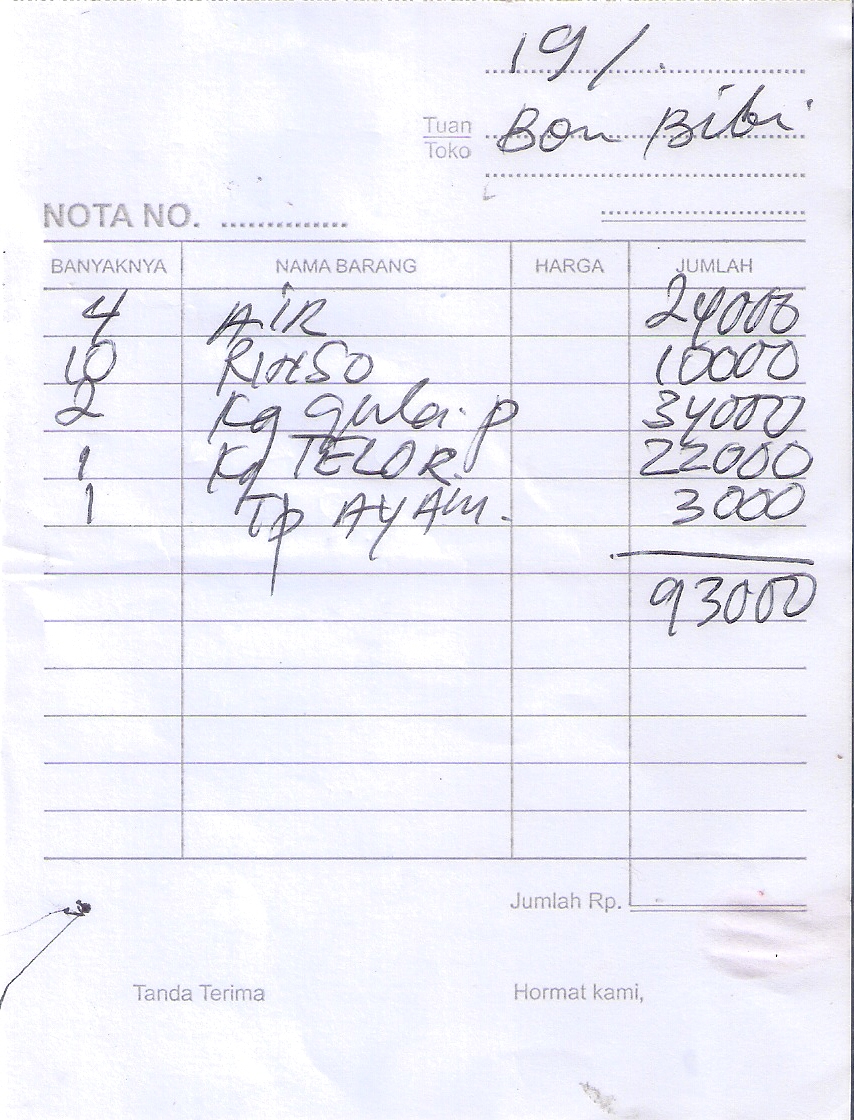 19/.
Tuan Bon Bibi
Toko
NOTA NO. ...............
BANYAKNYA NAMA BARANG HARGA JUMLAH
4 AIR 24000
10 RINSO 10000
2 Kg gula. p 34000
1 Kg TELOR. 22000
1 Tp AYAM. 3000
93000
Jumlah Rp.
Tanda Terima Hormat kami,